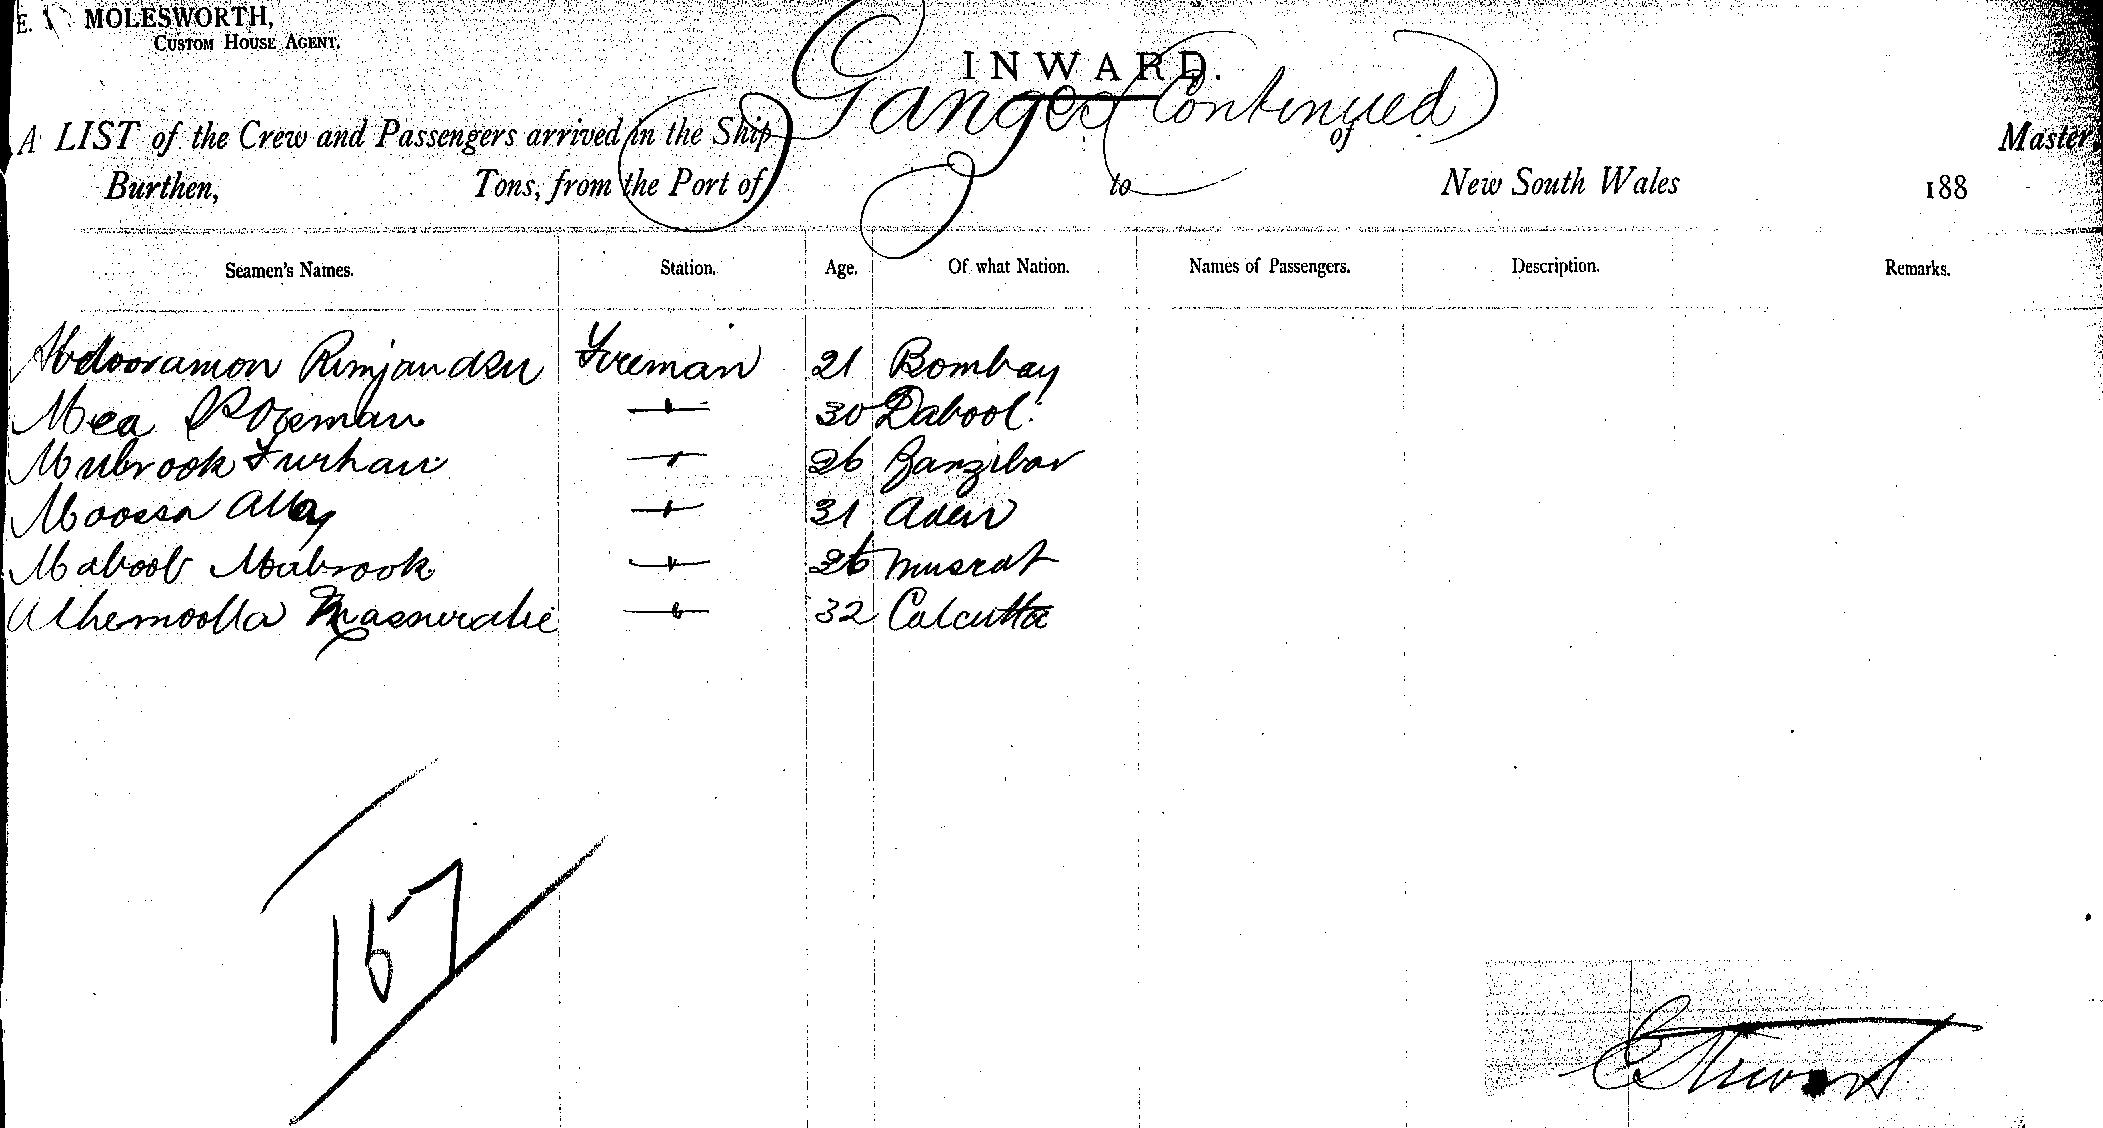 MOLESWORTH,
CUSTOM HOUSE AGENT.
INWARD.
A LIST of the Crew and Passengers arrived in the Ship Ganges (Continued) of Master,
Burthen, Tons, from the Port of to New South Wales 188
Seamen's Names. Station. Age. Of what Nation. Names of Passengers. Description. Remarks.
Abdooramon Fireman 21 Bombay
Mea 30 Dabool.
Mubrook Furhan 26 Zanzibar
Moossa Ally 31 Aden
Maboob Mubrook 26 Muscat
32 Calcutta
167